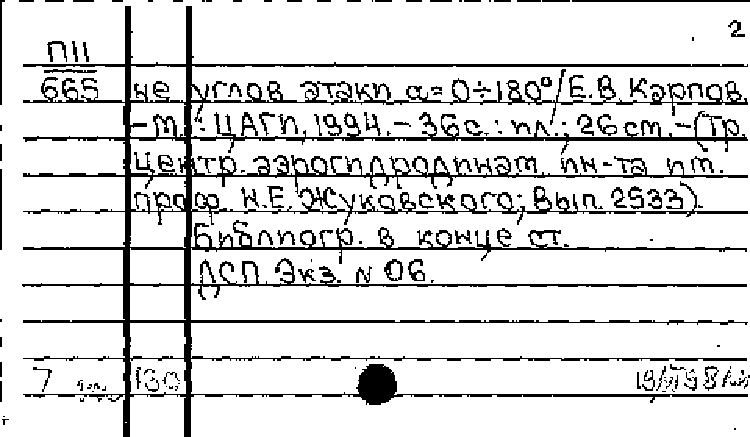 2
П11
665
не углов атаки α=0÷180°/Е.В. Карпов.
-М.: ЦАГИ, 1994.-36с.: ил.; 26 см.-(Тр.
Центр. аэрогидродинам. ин-та им.
проф. Н.Е. Жуковского; Вып. 2533).
Библиогр. в конце ст.
ДСП. Экз. N 06.
7 130